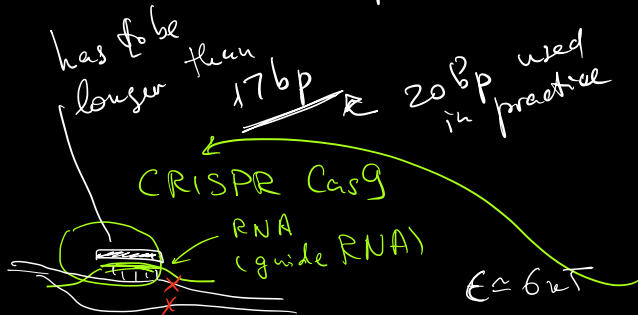 has to be
longer than
17bp
20bp used
in practice
CRISPR Cas9
RNA
(guide RNA)
ϵ ≃ 6κT